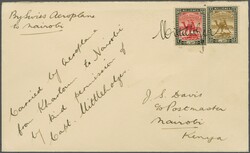 By Swiss Aeroplane
to Nairobi
Carried by aeroplane
from Khartoum to Nairobi
by kind permission of
Capt. Mittelholzer
J. S. Davis
Postmaster
Nairobi
Kenya